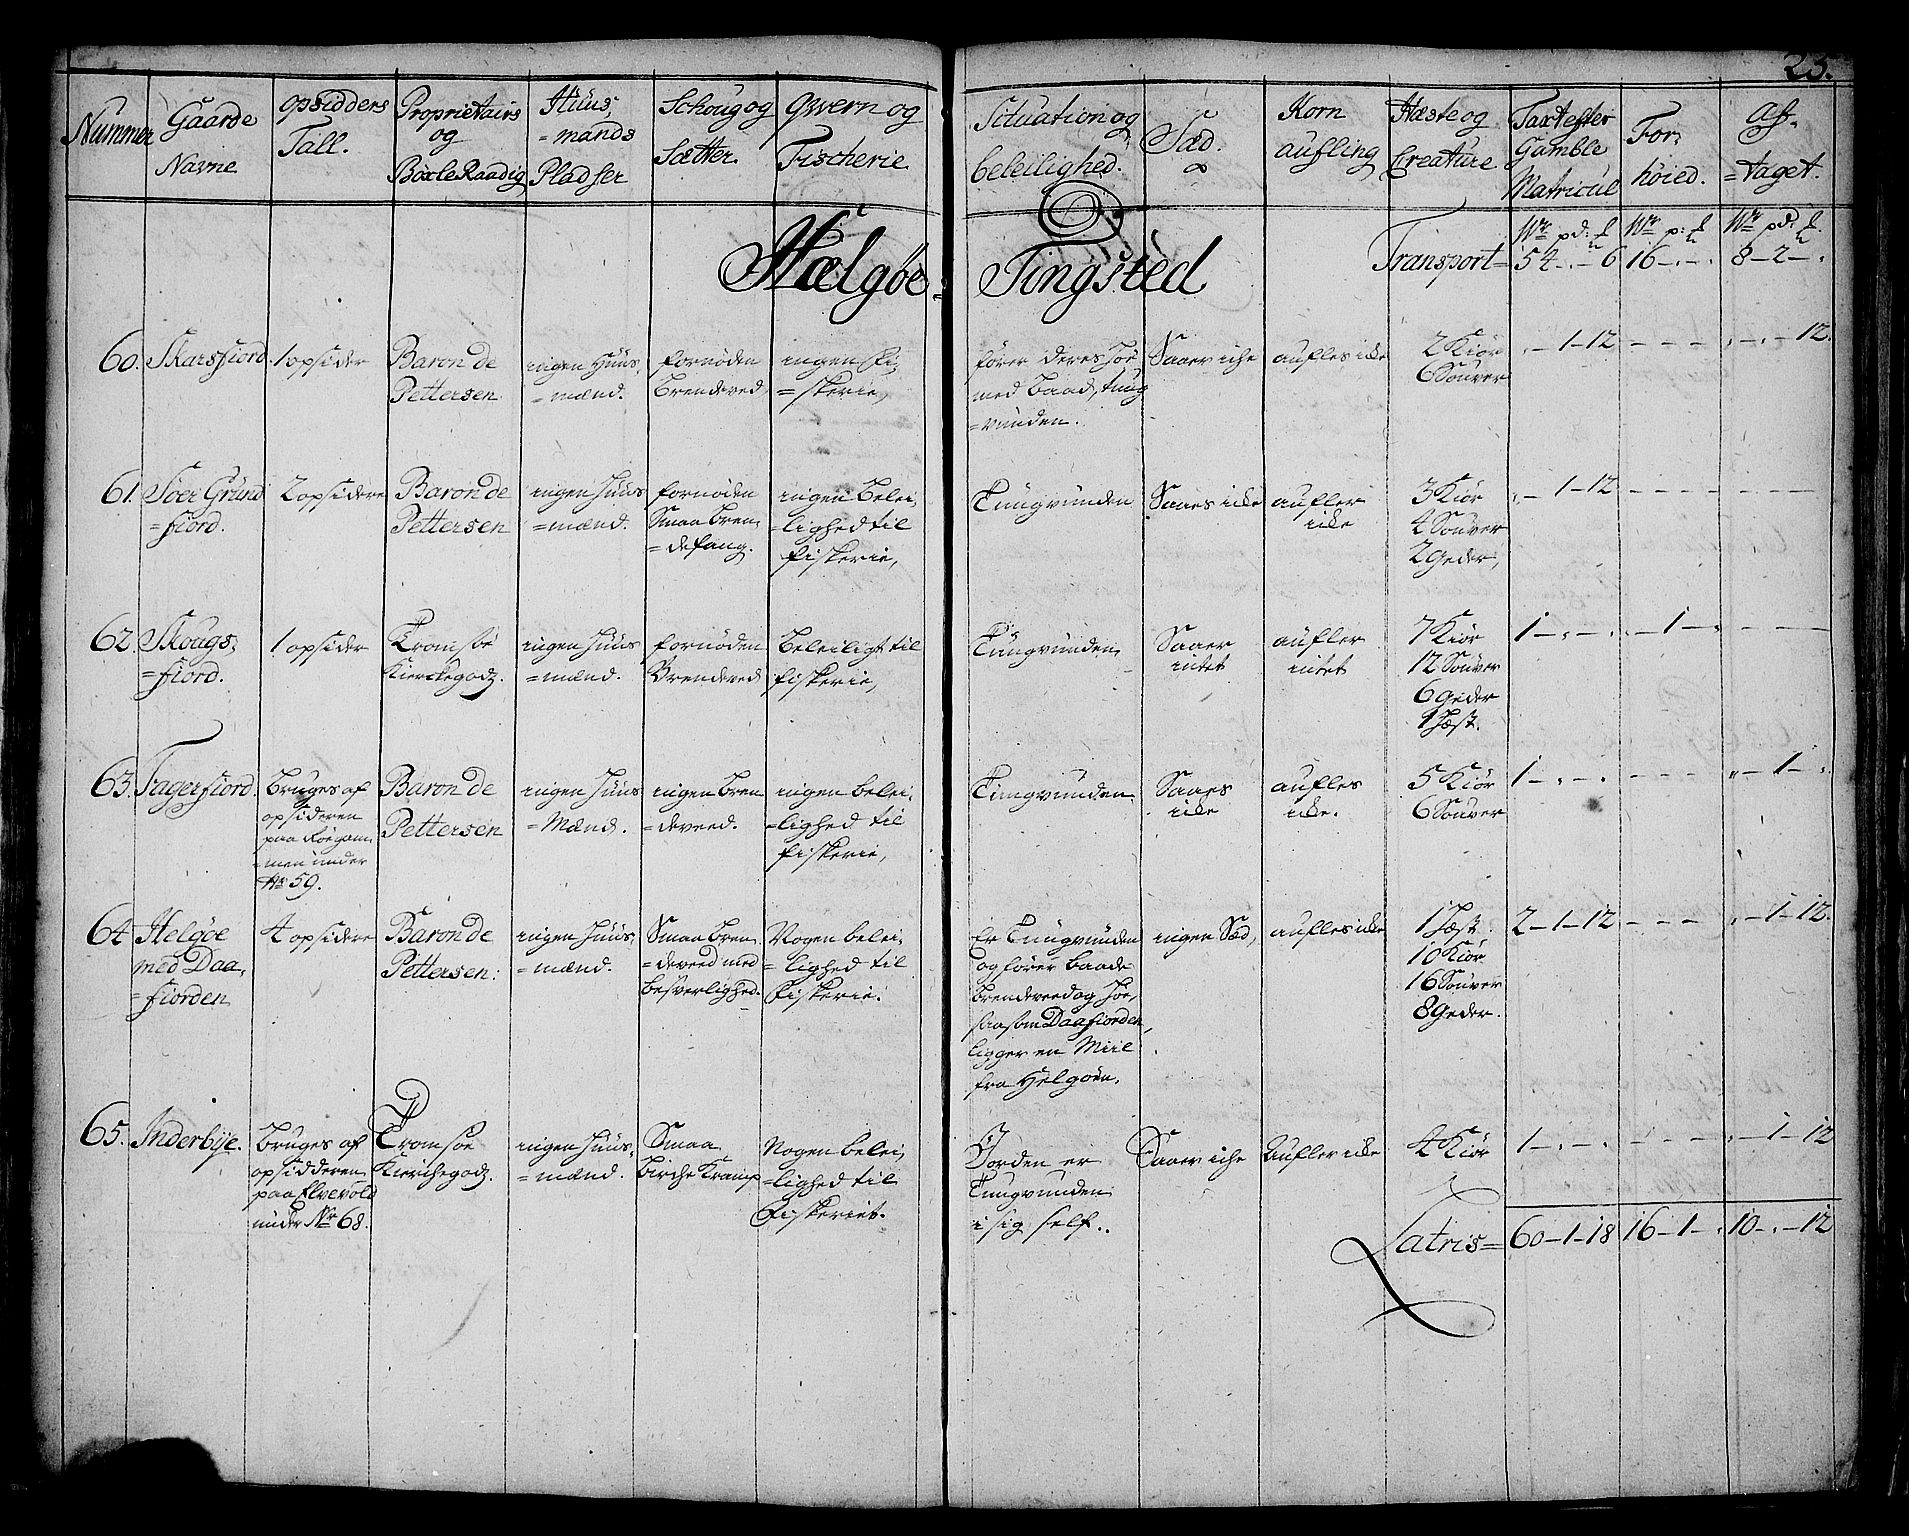 25.
Nummer
Gaarde
Navne
Opsidders
Tall.
Proprietairs
og
BøxleRaadig
Huus,
=mands
Pladser
Schoug og
Sætter.
Qvern og
Fischerie.
Situation og
beleilighed.
Sæd.
Korn
aufling
Hæste og
Creature.
Taxt efter
Gamble
Matricul
For,
høied.
Af,
=taget.
Hælgøe, Tingsted
Wr pd: £ Wr p: £ Wr pd: £
Transport= 54 - . - 6 16 - . - . 8 - 2 - .
60. Skarsfiord.
1 opsider
Baron de
Pettersen
ingen Huus,
=mænd.
fornøden
brendeved,
ingen Fi,
=skerie,
fører deres Høe
med baad, tung
=vunden.
Saaer iche
aufles icke
2 Kiør
6 Souver
. - 1 - 12 - - - - . - . - 12.
61. Soer Grund
=fiord.
2 opsidere
Baron de
Pettersen
ingen Huus
=mænd.
fornøden
Smaa bren,
=defang.
ingen belei,
=lighed til
fiskerie,
Tungvunden
Saaes icke
aufler
icke
3 Kiør
4 Souver
2 Geder,
. - 1 - 12 - - - - - - -
62. Skougs,
=fiord.
1 opsider
Tromsøe
Kierkegodz.
ingen Huus
=mænd.
fornøden
Brendeved
beleiligt til
fiskerie,
Tungvunden
Saaer
intet
aufler
intet
7 Kiør
12 Souver
6 Geder
1 Hæst.
1 - . - . . - 1 - . - - -
63. Fagerfiord.
bruges af
opsideren
paa Røegam,
=men under
No 59.
Baron de
Pettersen
ingen Huus
=Mænd.
ingen bren
=deveed.
ingen belei,
=lighed til
fiskerie,
Tungvunden
Saaes
icke
aufles
icke.
5 Kiør
6 Souver
1 - . - . - - - - . - 1 - .
64. Helgøe
med Daa,
=fiorden
4 opsidere
Baron de
Pettersen:
ingen Huus,
=mænd.
Smaa bren,
=deveed med
besverlighed.
Nogen belei,
=lighed til
Fiskerie.
Er Tungvunden
og fører baade
brendeveed og Høe,
saasom Daafiorden,
ligger en Miil
fra Helgøen.
ingen Sæd,
aufles icke
1 Hæst.
10 Kiør
16 Souver
8 Geder.
2 - 1 - 12 - - - . - 1 - 12.
65. Inderbÿe.
bruges af
opsidderen
paa Elvevold
under No 68.
Tromsøe
Kierchegodz.
ingen Huus,
=mænd.
Smaa
birche Kramp
Nogen belei,
=lighed til
Fiskeriet.
Jorden er
Tungvunden
i sig self.
Saaer iche
Aufler icke
4 Kiør
1 - . - . . - - - . - 1 - 12
Latris= 60 - 1 - 18 16 - 1 - . 10 - . - 12